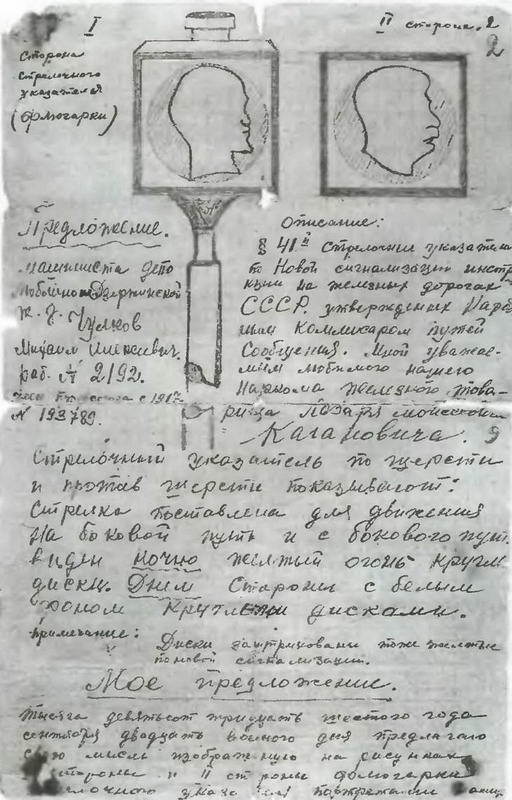 I
Сторона
стрелочного
указателя
(флюгарки)
II сторона. 2
2
Предложение.
машиниста депо
Дзержинской
ж. д. Чулков
Михаил Алексеевич.
раб. № 2192.
с 1917
N 193789.
Описание:
§ 41й Стрелочные указатели
по Новой сигнализации инстр
кции на железных дорогах
СССР. утвержденых Нар
ным Комиссаром путей
Сообщения. Мной уважае-
мым любимого нашего
Наркома железного това-
рища Лазаря Моисеевича
Кагановича.
Стрелочный указатель по шерсти
и против шерсти показывают:
Стрелка поставлена для движения
на боковой путь и с бокового пути
виден ночью желтый огонь кругл
диски. Днем Стороны с белым
фоном Круглыми дисками.
примечание:
Диски заштрихованы тоже желтые
по новой сигнализации.
Мое предложение.
Тысяча девятьсот тридцать шестого года
сентября двадцать дня предлагаю
свою мысль изображенную на рисунках
стороны и II стороны флюгарки
портретами